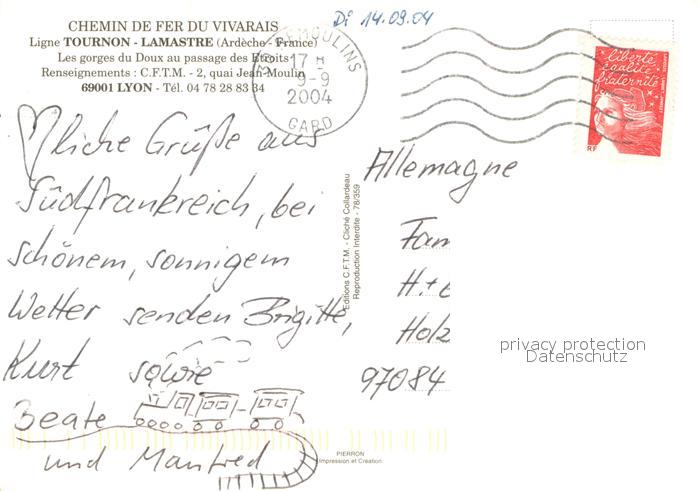 Di 14.09.04
CHEMIN DE FER DU VIVARAIS
Ligne TOURNON - LAMASTRE (Ardèche - France)
Les gorges du Doux au passage des Etroits
Renseignements : C.F.T.M. - 2, quai Jean Moulin
69001 LYON - Tél. 04 78 28 83 34
REMOULINS
17 H
9-9
2004
GARD
liberté
égalité
fraternité
RF
♡liche Grüße aus
Südfrankreich, bei
schönem, sonnigem
Wetter senden Brigitte,
Kurt sowie
Beate
und Manfred
Editions C.F.T.M. - Cliché Collardeau
Reproduction Interdite - 78/359
Allemagne
Fam
H. +
Holz
97084
privacy protection
Datenschutz
PIERRON
Impression et Création